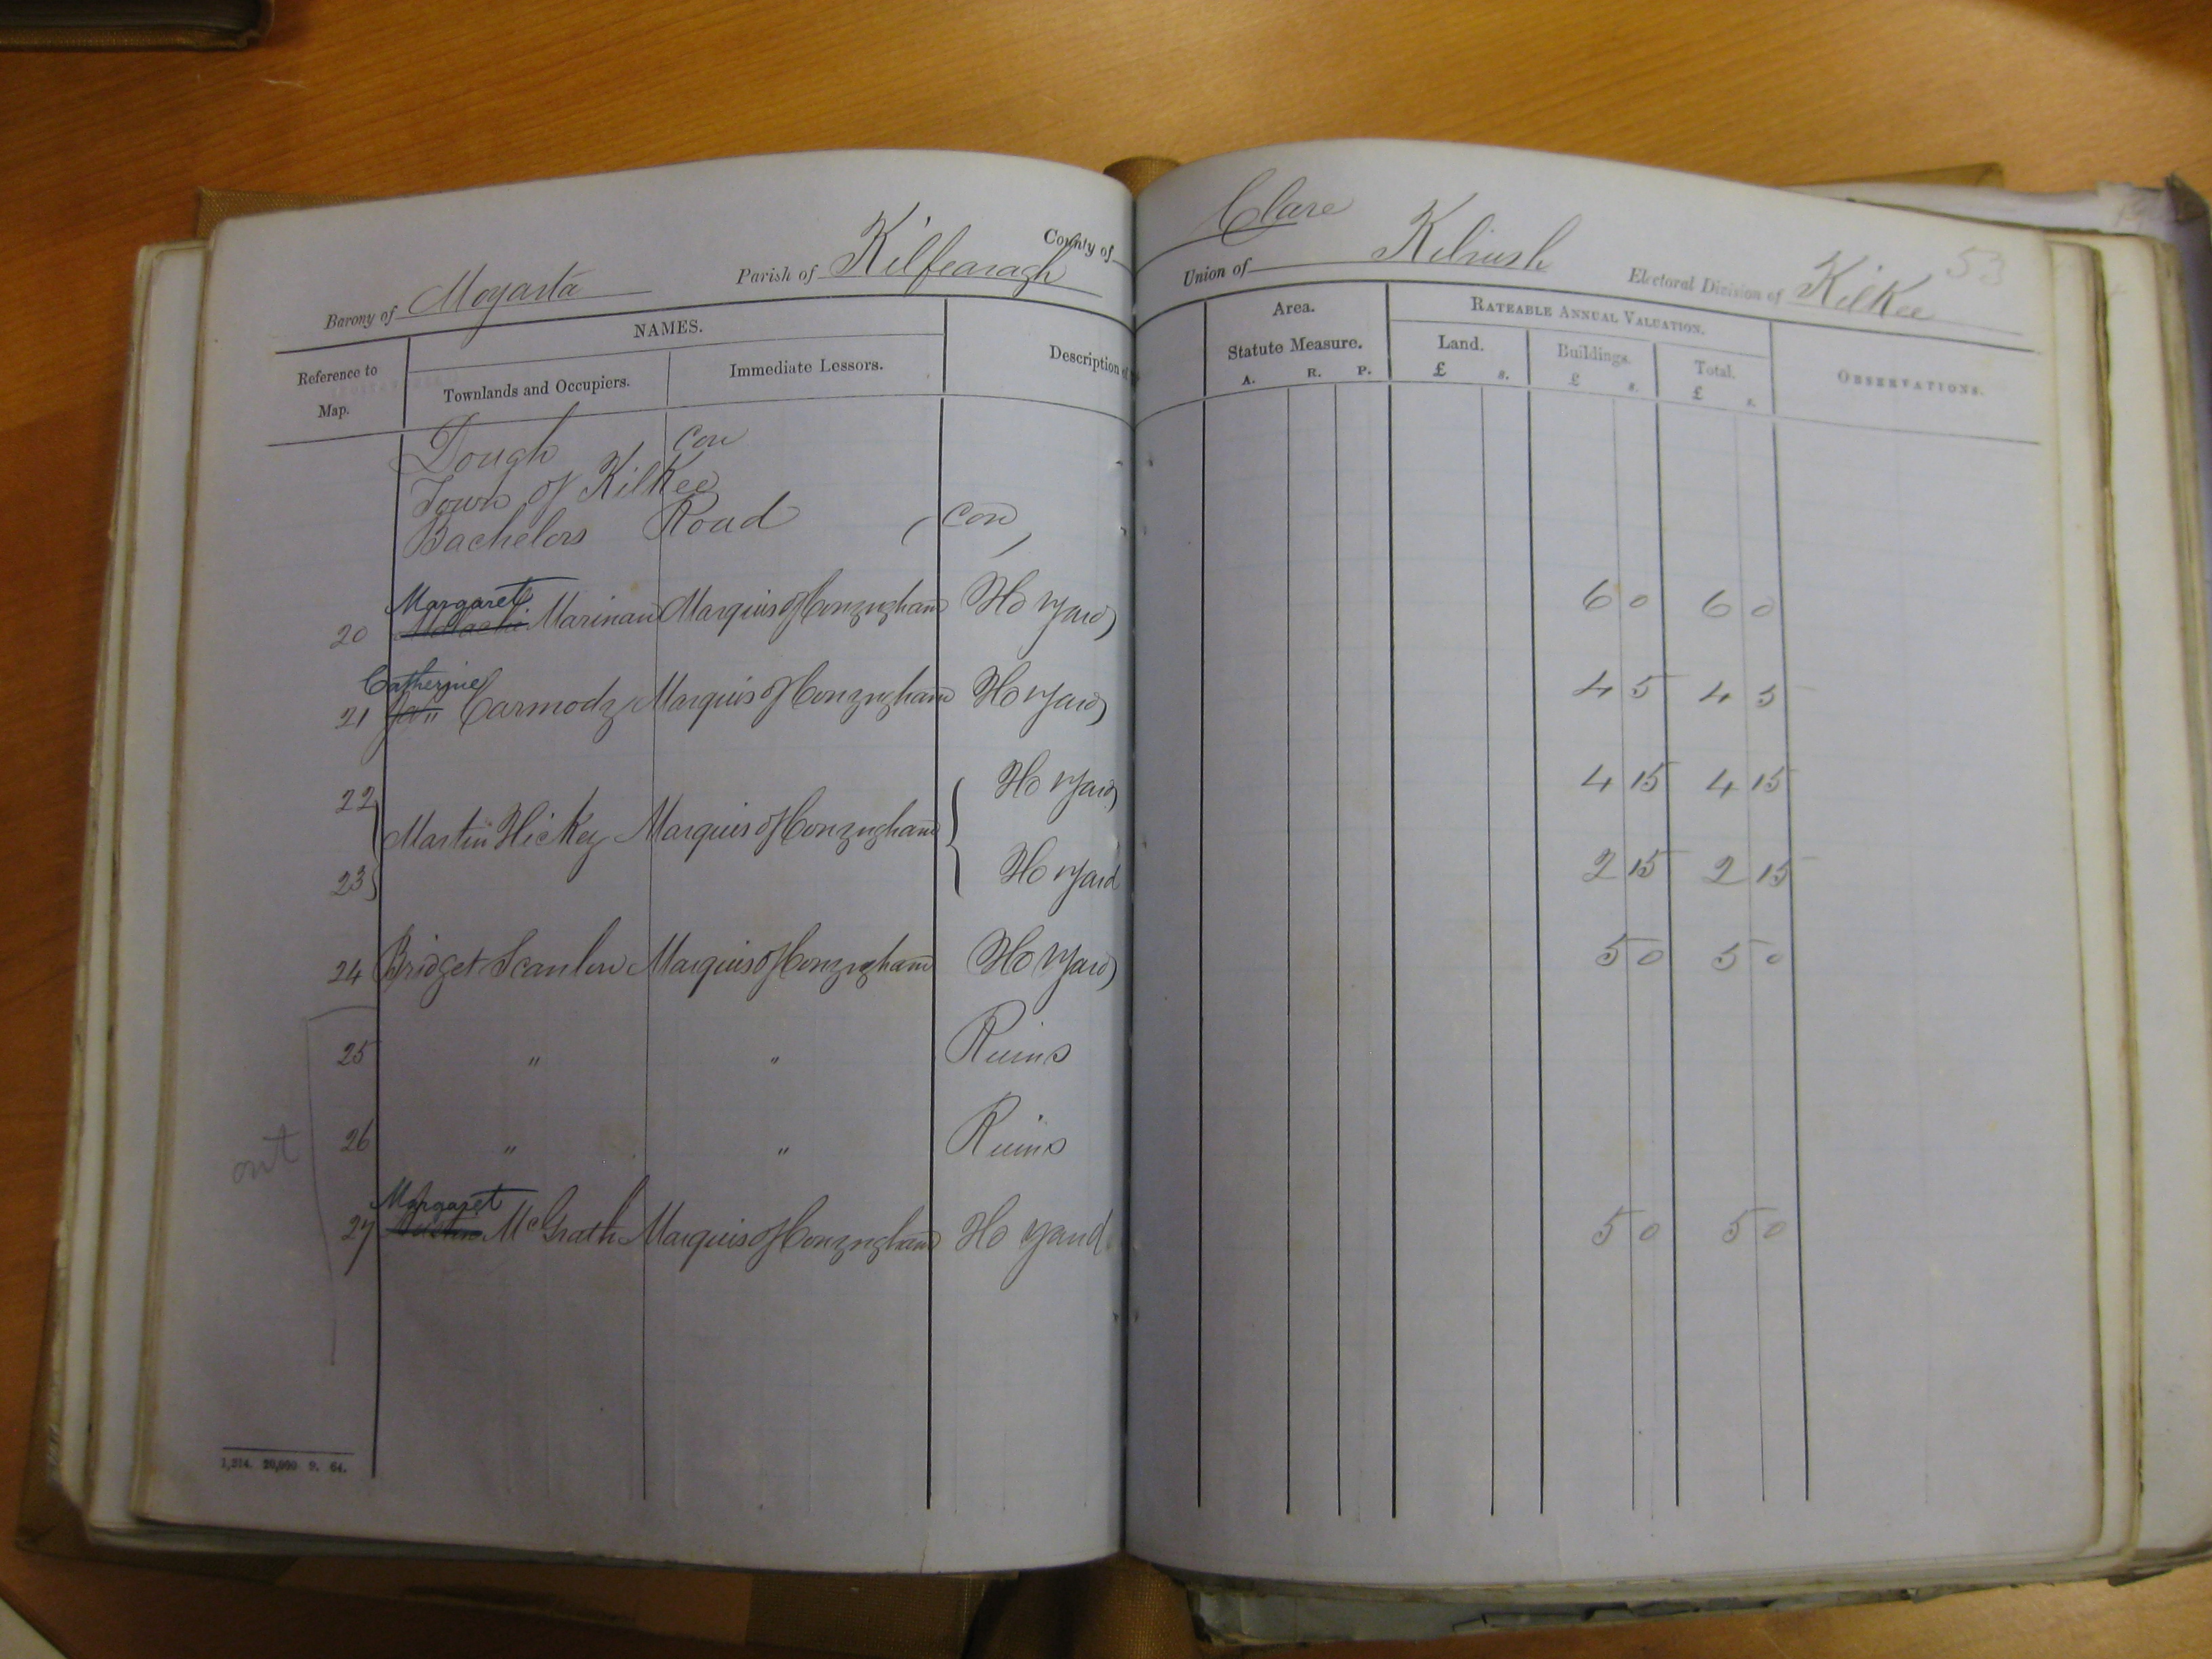 County of Clare
Barony of Moyarta Parish of Kilfearagh Union of Kilrush Electoral Division of Kilkee 53
Reference to Map. NAMES. Description of Area. RATEABLE ANNUAL VALUATION. OBSERVATIONS.
Townlands and Occupiers. Immediate Lessors. Statute Measure. Land. Buildings. Total.
A. R. P. £ s. £ s. £ s.
Dough Con
Town of Kilkee
Bachelors Road (Con)
Margaret
20 Marinan Marquis of Conyngham Ho yard 6 0 6 0
Catherine
21 Carmody Marquis of Conyngham Ho yard 4 5 4 5
22 Ho yard 4 15 4 15
Martin Hickey Marquis of Conyngham
23 Ho yard 2 15 2 15
24 Bridget Scanlon Marquis of Conyngham Ho yard 5 0 5 0
25 " " Ruins
26 " " Ruins
out
Margaret
27 McGrath Marquis of Conyngham Ho yard 5 0 5 0
1,314. 20,000 9. 64.